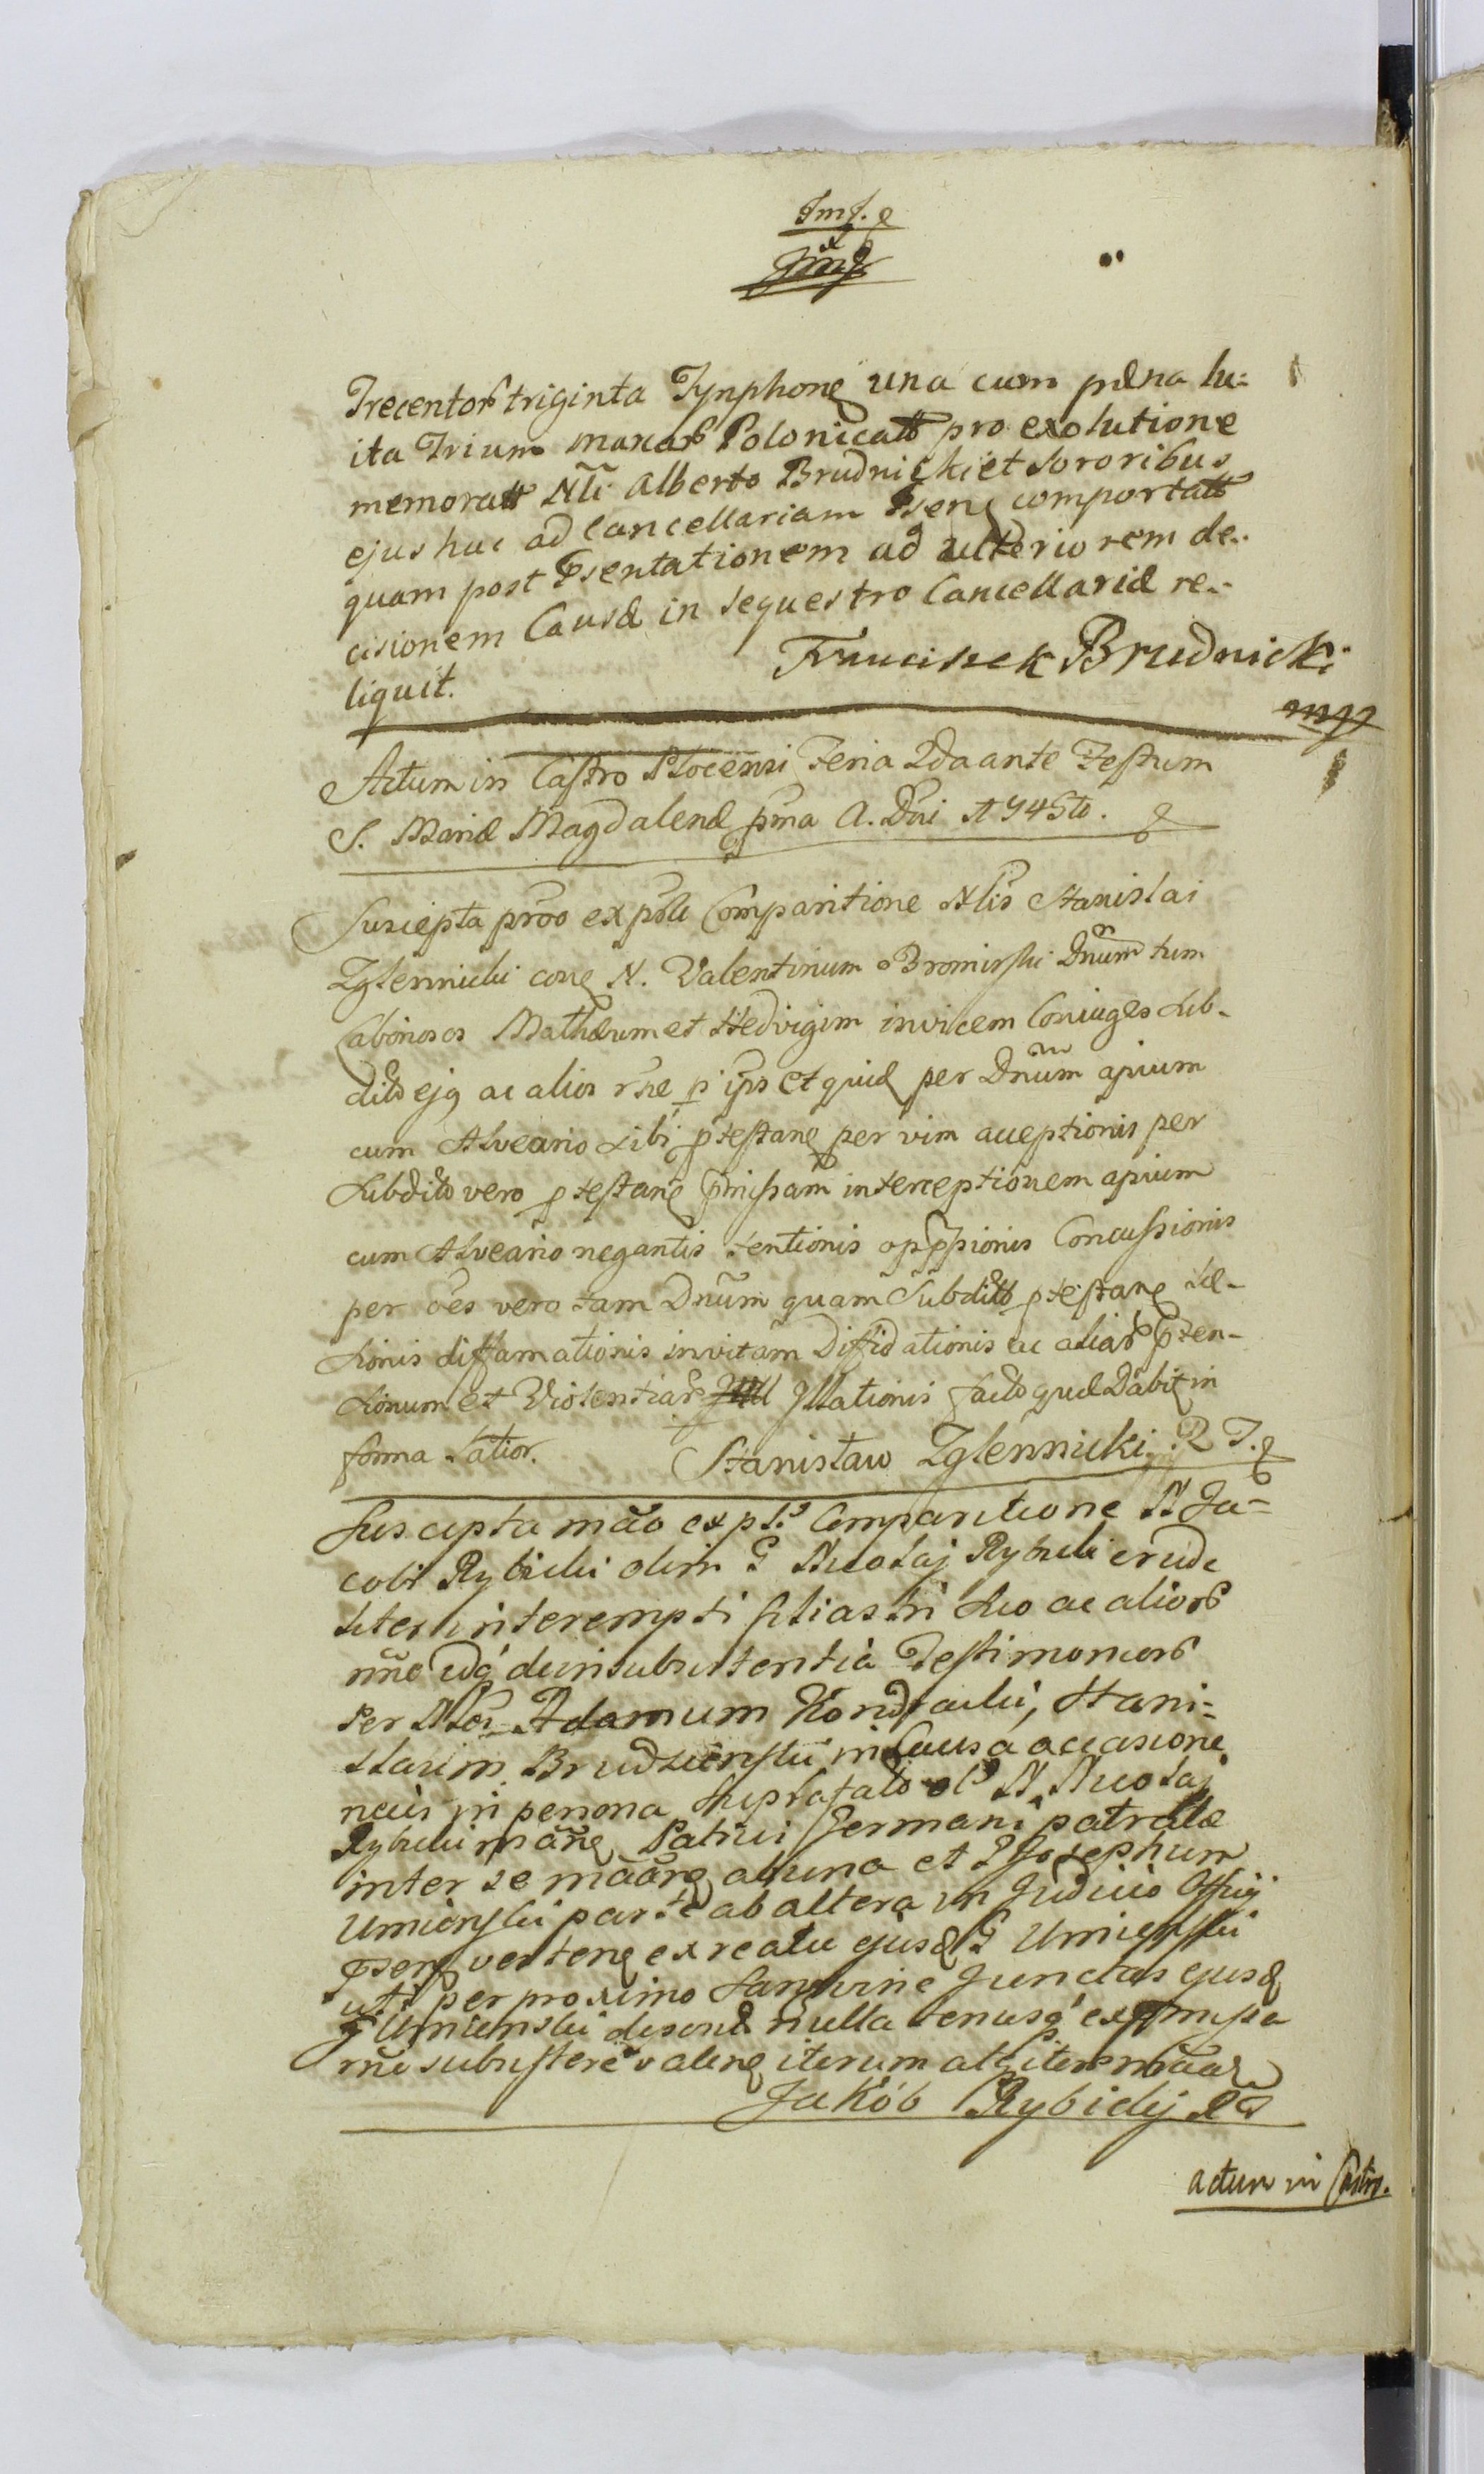 Trecentor triginta Tynphone una cum pæna lu=
ita Trium marcar Polonicall pro exolutione
memorall Nli Alberto Brudnicki et Sororibus
ejus huc ad Cancellariam Psene comportall
quam post Psentationem ad ulteriorem de-
cisionem Causæ in sequestro Cancellariæ re-
liquit. Franciszek Brudnicki
mp
Actum in Castro Plocensi Feria 2da ante Festum
S. Mariæ Magdalenæ pma A. Dni 1745to.
Suscepta prōo ex pste Comparitione Nlis Stanislai
Zglennicki N. Valentinum Bromirski Dnum tum
Labōriosos Mathæum et Hedvigim invicem Coniuges Sub-
ditos ejq ac alios rne p ips et quid per Dnum apium
cum Alveario sibi ptestane per vim acceptionis per
Subditos vero ptestane pmissam interceptionem apium
cum Alveario negantis tentionis oppssionis Concussionis
per oes vero tam Dnum quam Subditos ptestane
sionis diffamationis in vitam Diffidationis ac aliar pten-
sionum et Violentiar Illationis facto quæ Dabit in
forma Latior. Stanisław Zglennicki
Suscepta mão ex pte Comparitione N Ja=
cobi Rybicki olim G Nicolaj Rybicki crude
liter interempti filiastri suo ac alior
nne de insubsistentia Testimonior
per Nlos Adamum Kondracki, Stani=
slaum Brudzienski in Causa occasione
necis in persona N Nicolaj
Rybicki mane Patrui Germani patratæ
inter se ab una et G Josephum
Umienski parte ab altera in Judicio Officij
Psene vertene ex reatu ejusd G Umienski
uti per proximo Sanguine Junctas ejusd
G Umienski nulla tenusq ex pmissa
subsistere valene iterum
Jakób Rybickj
actum in Castro.